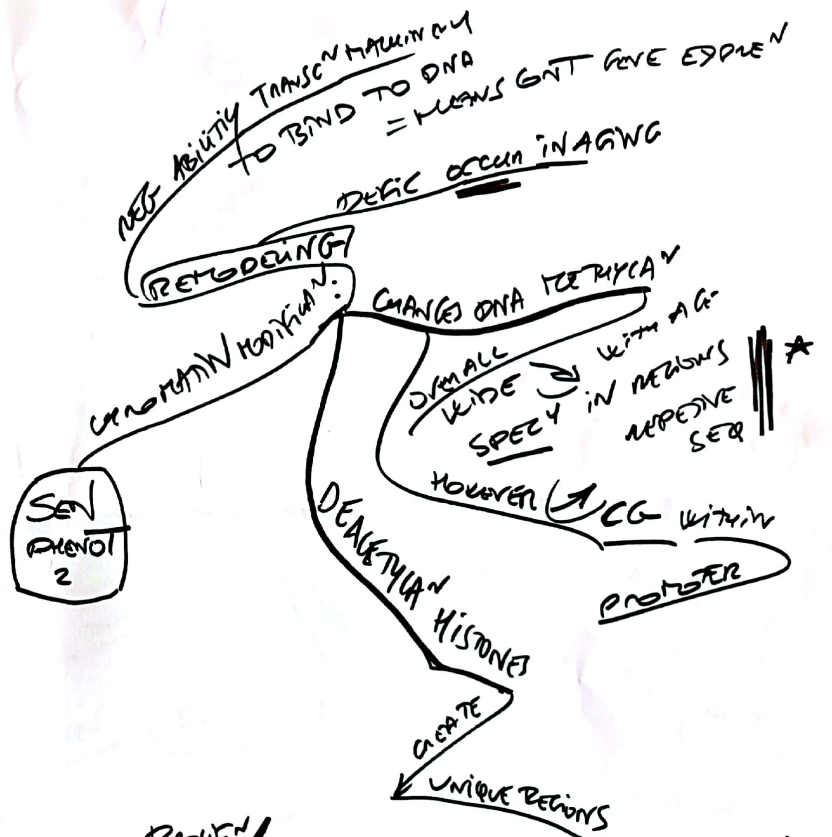 NEG ABILITY TRANSCᴺ MACHINERY
TO BIND TO DNA
= MEANS CONT GENE EXPREᴺ
DEFIC OCCUR IN AGING
REMODELING
CHROMATIN MODIFICAᴺ:
SEN
PHENOT
2
CHANGES DNA METHYLAᴺ
OVERALL
WIDE WITH AGE
SPECY IN REGIONS
REPETIVE
SEQ
HOWEVER CG WITHIN
PROMOTER
DEACETYLAᴺ HISTONES
CREATE
UNIQUE REGIONS